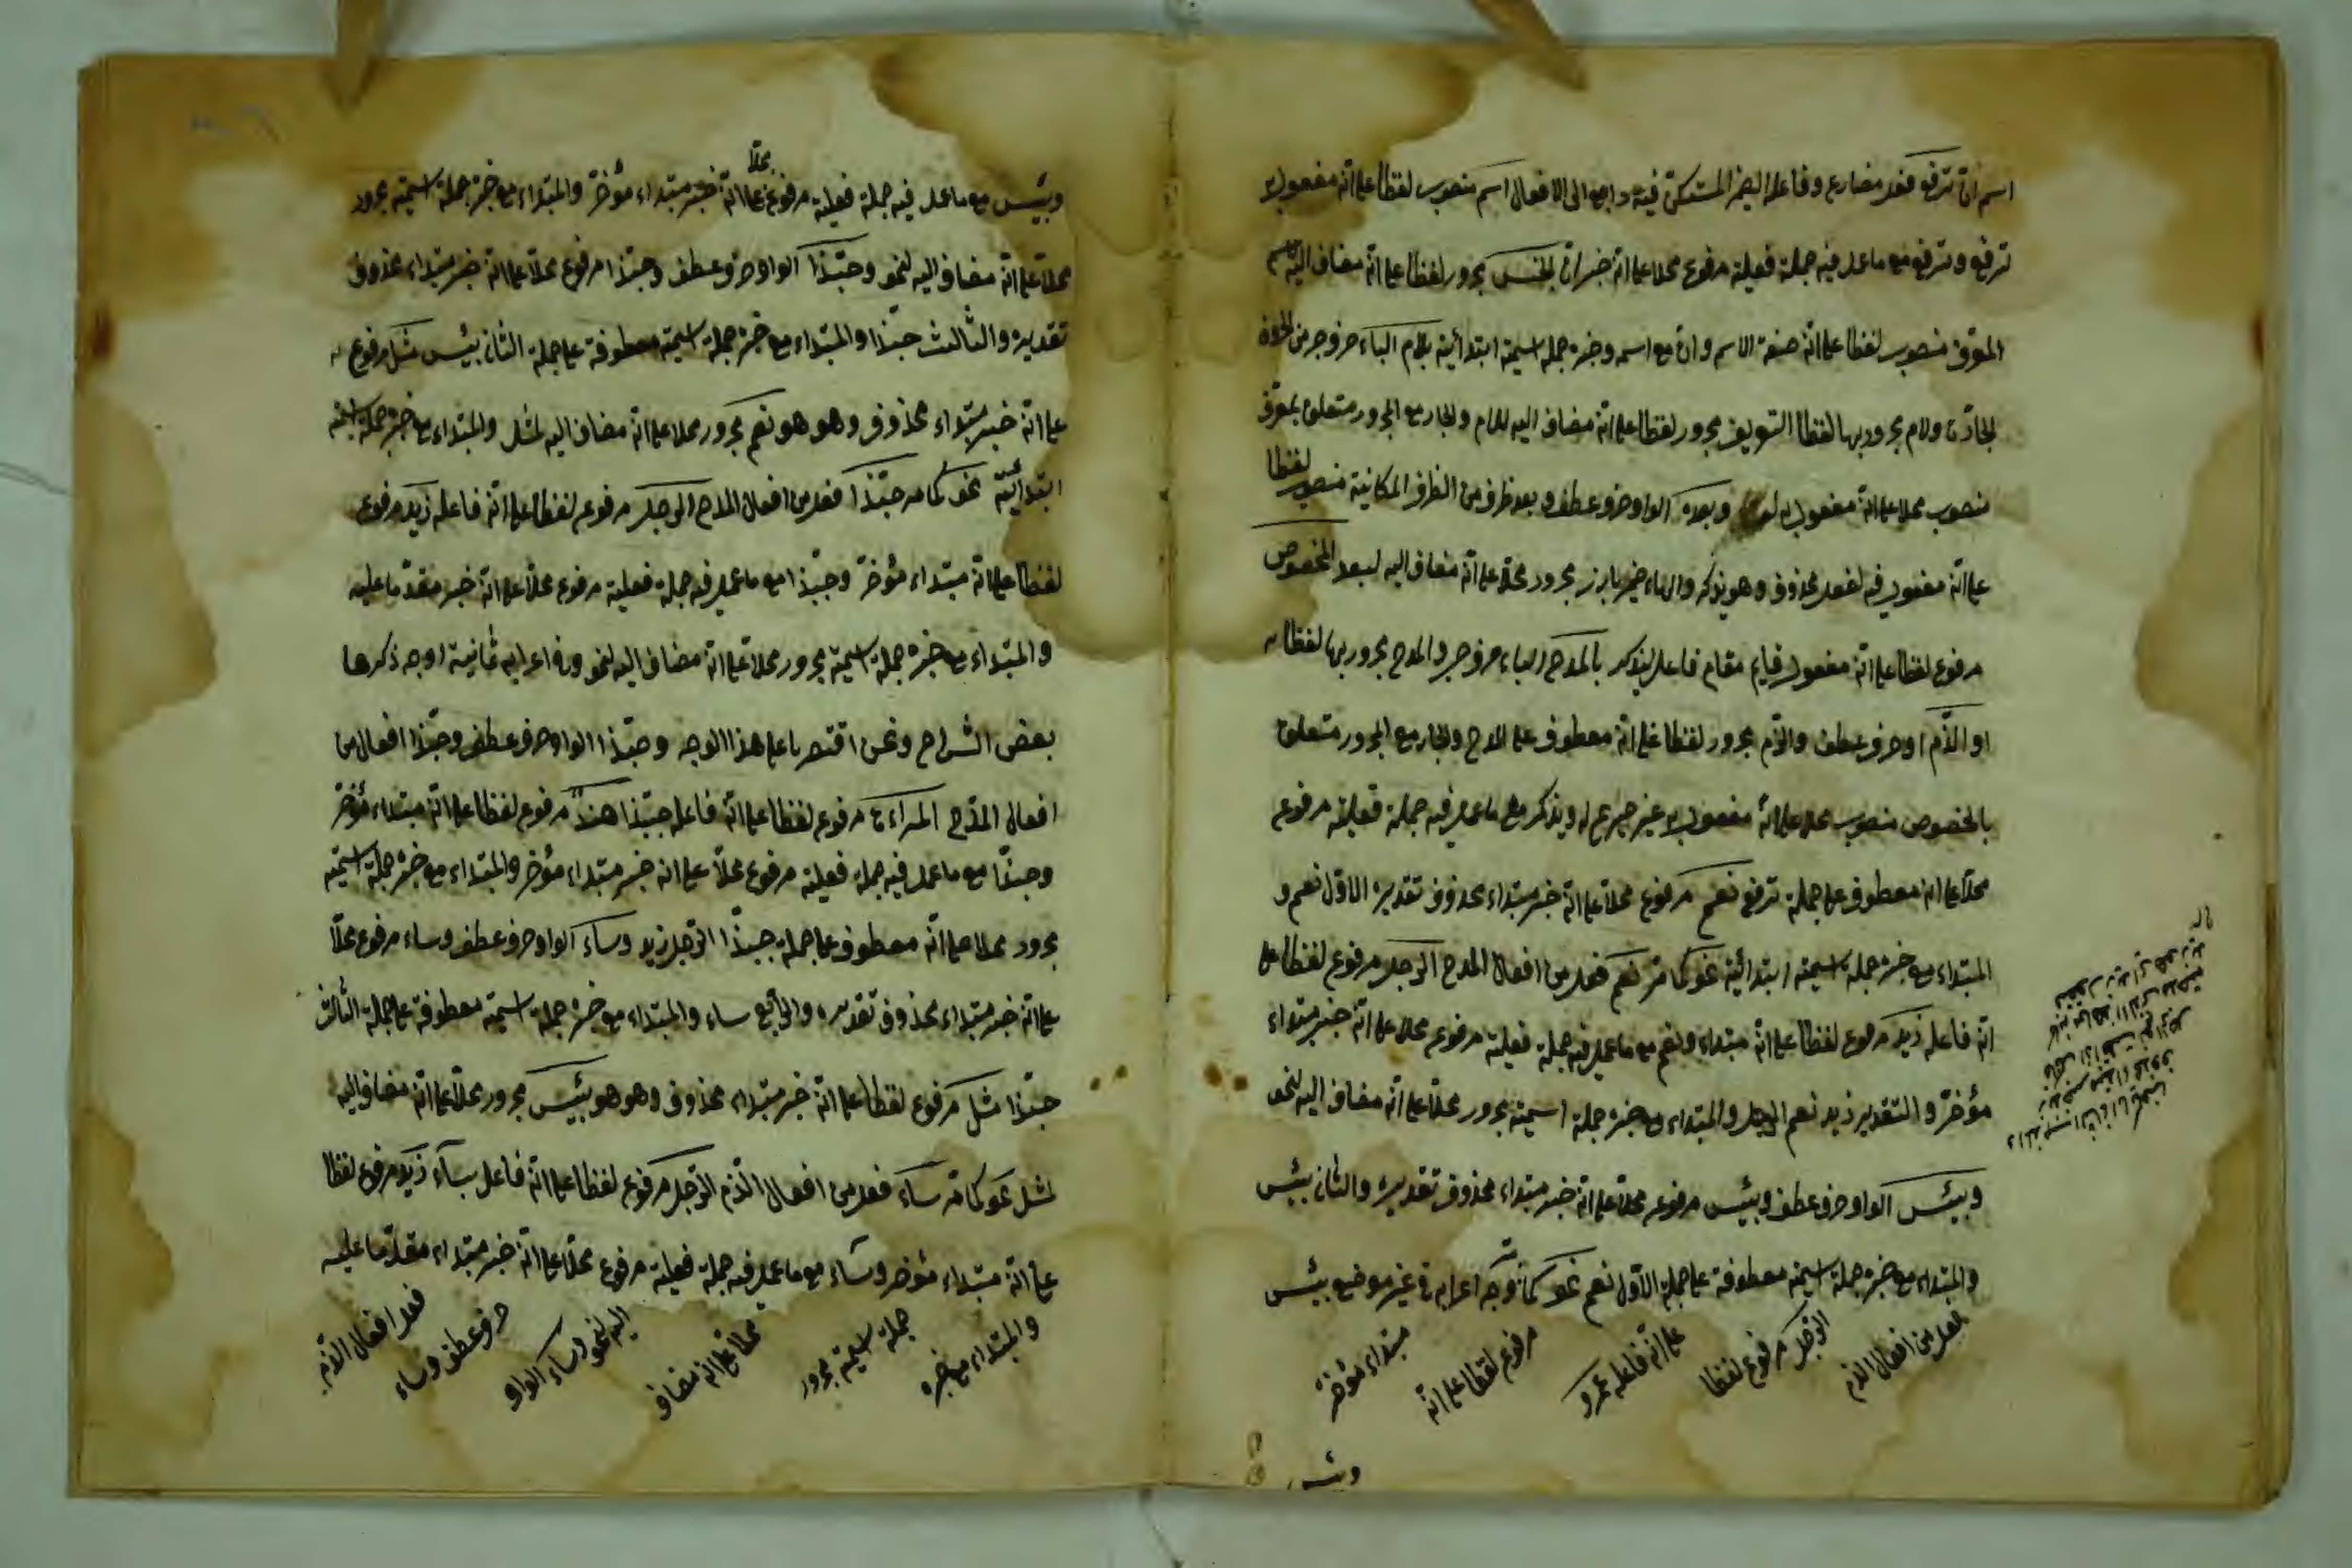 اسم ان ترفع فعل مضارع وفاعله الضمير المستكن فيه راجع الى الافعال اسم منصوب لفظا على انه مفعول به
ترفع وترفع مع ما عمل فيه جملة فعلية مرفوع محلا على انه خبر ان الجنس مجرور لفظا على انه مضاف اليه لاسم
المعرف منصوب لفظا على انه صفة الاسم وان مع اسمه وخبره جملة اسمية ابتدائية بلام الباء حرف جر من الحروف
الجارة ولام مجرور بها لفظا التعريف مجرور لفظا على انه مضاف اليه للام والجار مع المجرور متعلق بمعرف
منصوب محلا على انه مفعول به وبعده الواو حرف عطف وبعد ظرف من الظرف المكانية منصوب لفظا
على انه مفعول فيه لفعل محذوف وهو يذكر والهاء ضمير بارز مجرور محلا على انه مضاف اليه لبعد المخصوص
مرفوع لفظا على انه مفعول قيام مقام فاعل ليذكر بالمدح الباء حرف جر والمدح مجرور بها لفظا
او الذم او حرف عطف والذم مجرور لفظا على انه معطوف على المدح والجار مع المجرور متعلق
بالمخصوص منصوب محلا على انه مفعول به غير صريح له ويذكر مع ما عمل فيه جملة فعلية مرفوع
محلا على انه معطوف على جملة ترفع نعم مرفوع محلا على انه خبر مبتداء محذوف تقديره الاول نعم و
المبتداء مع خبره جملة اسمية ابتدائية نحو كما مر نعم فعل من افعال المدح الرجل مرفوع لفظا على
انه فاعله زيد مرفوع لفظا على انه مبتداء ونعم مع ما عمل فيه جملة فعلية مرفوع محلا على انه خبر مبتداء
مؤخر والتقدير زيد نعم الرجل والمبتداء مع خبره جملة اسمية مجرور محلا على انه مضاف اليه لنحو
وبئس الواو حرف عطف وبئس مرفوع محلا على انه خبر مبتداء محذوف تقديره والثان بئس
والمبتداء مع خبره جملة اسمية معطوفة على جملة الاول نعم نحو كما مر وجه اعرابه في غير موضع بئس
فعل من افعال الذم
الرجل مرفوع لفظا
على انه فاعله عمرو
مرفوع لفظا على انه
مبتداء مؤخر
وبئس
وبئس مع ما عمل فيه جملة فعلية مرفوع محلا على انه خبر مبتداء مؤخر والمبتداء مع خبره جملة اسمية مجرور
محلا على انه مضاف اليه لنحو وحبذا الواو حرف عطف وحبذا مرفوع محلا على انه خبر مبتداء محذوف
تقديره والثالث حبذا والمبتداء مع خبره جملة اسمية معطوفة على جملة الثان بئس مثل مرفوع
على انه خبر مبتداء محذوف وهو هو نعم مجرور محلا على انه مضاف اليه لمثل والمبتداء مع خبره جملة اسمية
ابتدائية نحو كما مر حبذا فعل من افعال المدح الرجل مرفوع لفظا على انه فاعله زيد مرفوع
لفظا على انه مبتداء مؤخر وحبذا مع ما عمل فيه جملة فعلية مرفوع محلا على انه خبر مقدما عليه
والمبتداء مع خبره جملة اسمية مجرور محلا على انه مضاف اليه لنحو وفي اعرابه ثمانية اوجه ذكرها
بعض الشراح ونحن اقتصرنا على هذا الوجه وحبذا الواو حرف عطف وحبذا افعال من
افعال المدح المراءة مرفوع لفظا على انه فاعله حبذا هند مرفوع لفظا على انه مبتداء مؤخر
وحبذا مع ما عمل فيه جملة فعلية مرفوع محلا على انه خبر مبتداء مؤخر والمبتداء مع خبره جملة اسمية
مجرور محلا على انه معطوف على جملة حبذا الرجل زيد وساء الواو حرف عطف وساء مرفوع محلا
على انه خبر مبتداء محذوف تقديره والرابع ساء والمبتداء مع خبره جملة اسمية معطوفة على جملة الثالث
حبذا مثل مرفوع لفظا على انه خبر مبتداء محذوف وهو هو بئس مجرور محلا على انه مضاف اليه
لمثل نحو كما مر ساء فعل من افعال الذم الرجل مرفوع لفظا على انه فاعل ساء زيد مرفوع لفظا
على انه مبتداء مؤخر وساء مع ما عمل فيه جملة فعلية مرفوع محلا على انه خبر مبتداء مقدما عليه
والمبتداء مع خبره
جملة اسمية مجرور
محلا على انه مضاف
اليه لنحو وساء الواو
حرف عطف وساء
فعل افعال الذم